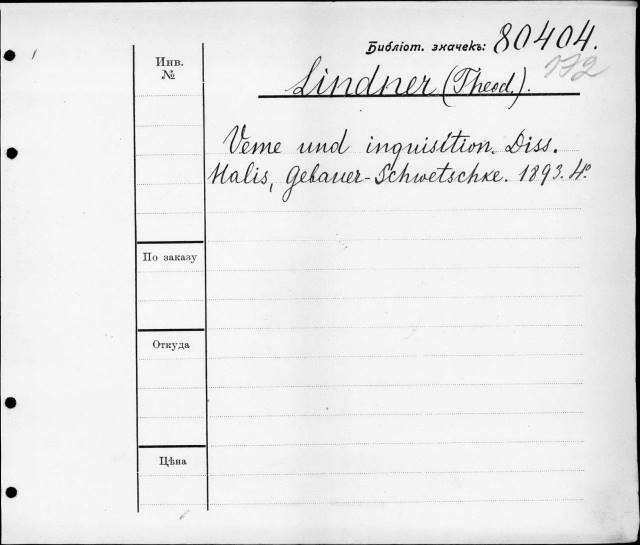 Библіот. значекъ: 80404.
172
Инв.
№
Lindner (Theod.).
Veme und inquisition. Diss.
Halis, Gebauer-Schwetschke. 1893. 4°.
По заказу
Откуда
Цѣна